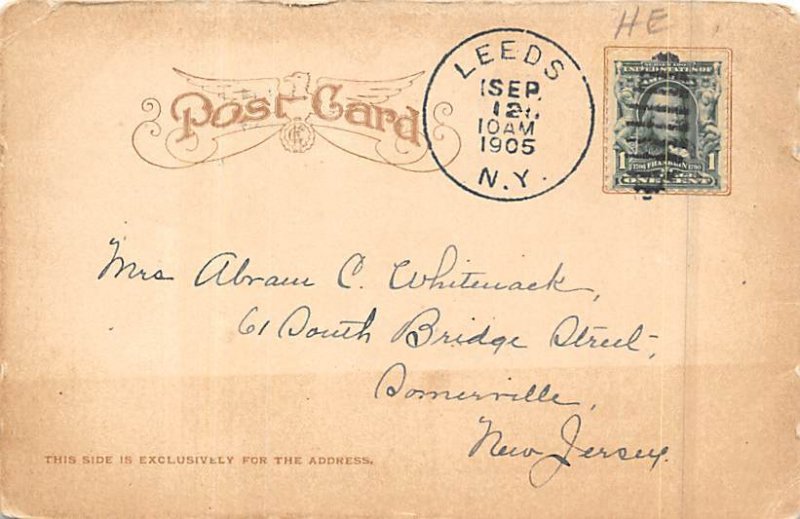 HE
Post Card
LEEDS
SEP
12
10AM
1905
N.Y.
SERIES 1902
UNITED STATES OF
1 FRANKLIN 1
ONE CENT
Mrs Abram C. Whitenack,
61 South Bridge Street,
Somerville,
New Jersey.
THIS SIDE IS EXCLUSIVELY FOR THE ADDRESS.